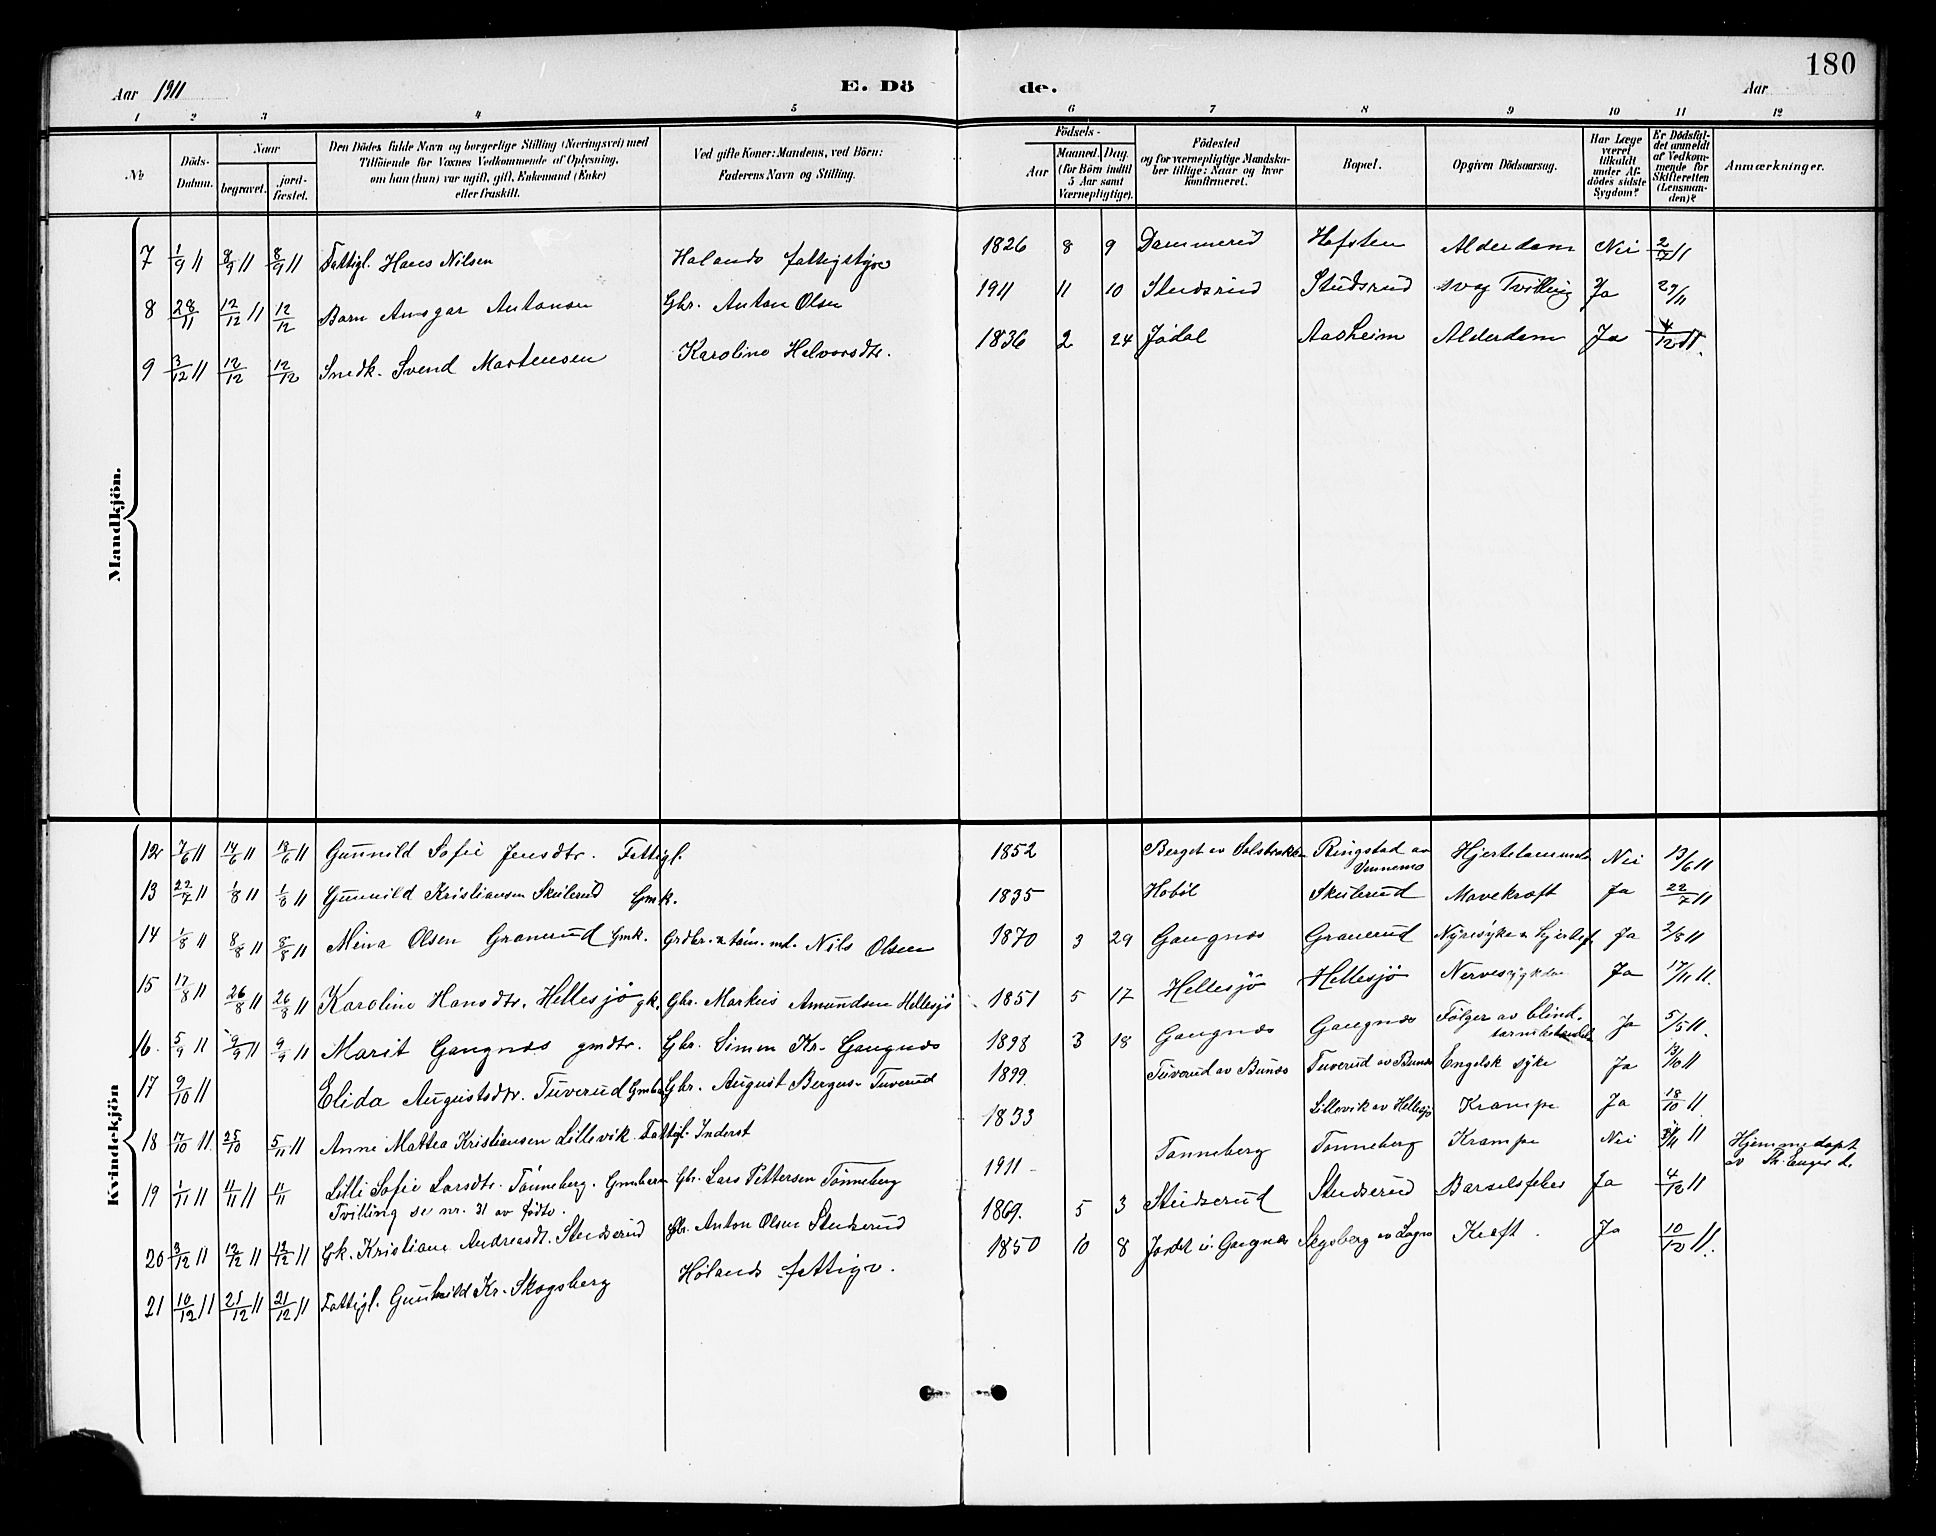 180
Aar 1911 E. Dö de. Aar
1 2 3 4 5 6 7 8 9 10 11 12
No
Döds-Datum.
Naar
begravet.
jord-fæstet.
Den Dödes fulde Navn og borgerlige Stilling (Næringsvei) med
Tilföiende for Voxnes Vedkommende af Oplysning,
om han (hun) var ugift, gift, Enkemand (Enke)
eller fraskilt.
Ved gifte Koner: Mandens, ved Börn:
Faderens Navn og Stilling.
Födsels-
Aar
Maaned. Dag.
(for Börn indtil
5 Aar samt
Værnepligtige).
Födested
og for værnepligtige Mandska-
ber tillige: Naar og hvor
konfirmeret.
Bopæl.
Opgiven Dödsaarsag.
Har Læge
været
tilkaldt
under Af-
dödes sidste
Sygdom?
Er Dödsfal-
det anmeldt
af Vedkom-
mende for
Skifteretten
(Lensman-
den)?
Anmærkninger.
Mandkjön.
7 1/9 11 8/9 11 8/9 11 Fattigl. Hans Nilsen Hølands fattigstyre 1826 8 9 Dammerud Hofsten Alderdom Nei 2/9 11
8 28/11 12/12 11 12/12 Barn Ansgar Antonsen Gbr. Anton Olsen 1911 11 10 Studsrud Studsrud svag Tvilling Ja 29/11
9 3/12 11 12/12 12/12 Snedk. Svend Martensen Karoline Helvorsdtr. 1836 2 24 Jødal Aasheim Alderdom Ja 4/12 11.
Kvindekjön
12 7/6 11 14/6 11 18/6 11 Gunnild Sofie Jensdtr. Fattigl. 1852 Berget av Ringstad av
Vennemo Nei 13/6 11
13 22/7 11 1/8 11 1/8 11 Gunnild Kristiansen Skulerud Gmk. 1835 Hobøl Skulerud Mavekræft Ja 22/7 11
14 1/8 11 8/8 11 8/8 11 Mina Olsen Granerud Gmk. Grdbr. & tøm. md. Nils Olsen 1870 3 29 Gangnæs Granerud Nyresyke & Ja 2/8 11
15 17/8 11 26/8 11 26/8 11 Karoline Hansdtr. Hellesjö gk. Gbr. Markus Amundsen Hellesjö 1851 5 17 Hellesjö Hellesjö Ja 17/11 11.
16. 5/9 11 9/9 11 9/9 11 Marit Gangnæs gmdtr. Gbr. Simen Kr. Gangnæs 1898 3 18 Gangnæs Gangnæs Følger av blind-
Ja 5/5 11.
17 9/10 11 Elida Augustsdtr. Tuverud Gbr. August Bergus. Tuverud 1899 Tuverud av Bunæs Tuverud av Bunæs Engelsk syke Ja 13/10 11
18 7/10 11. 25/10 5/11 11 Anne Mattea Kristiansen Lillevik Fattigl. Inderst 1833 Lillevik av Hellesjö Krampe Ja 18/10 11.
19 1/11 11 11/11 11 11/11 Lilli Sofie Larsdtr. Tönneberg. Gmbarn Gbr. Lars Pettersen Tönneberg 1911 Tonneberg Tonneberg Krampe Nei Hjemmedøpt
Tvilling se nr. 31 av fødte. av Th. Enger d.
20 3/12 11 12/12 11 12/12 11 Gk. Kristiane Andreasdt. Studserud Gbr. Anton Olsen Studserud 1869. 5 3 Studserud Studserud Barselfeber Ja 4/12 11
21 10/12 11 21/12 11 21/12 11 Fattigl. Gunhild Kr. Skogsberg Hølands fattigv. 1850 10 8 Jordet u. Gangnæs Skgsberg av Kræft. Ja 10/12 11.